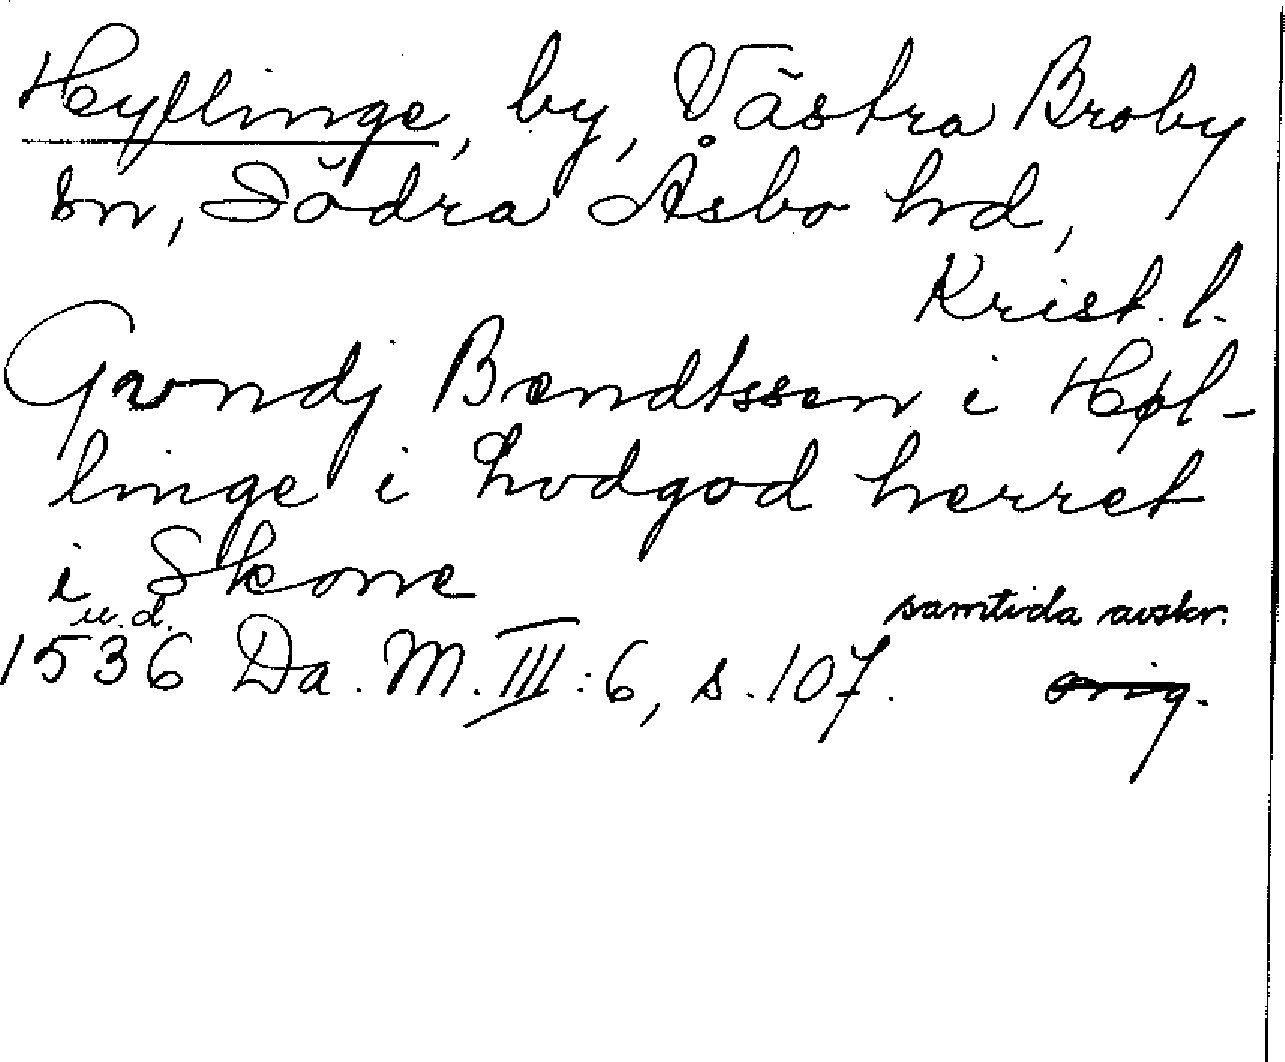 Heyllinge, by, Västra Broby
sn, Södra Åsbo hd,
Krist. l.
Gwndj Bendtssen i Høl-
linge i hodgod herret
i Skone
u. d.
samtida avskr.
1536 Da. M. III:6, s. 107. orig.